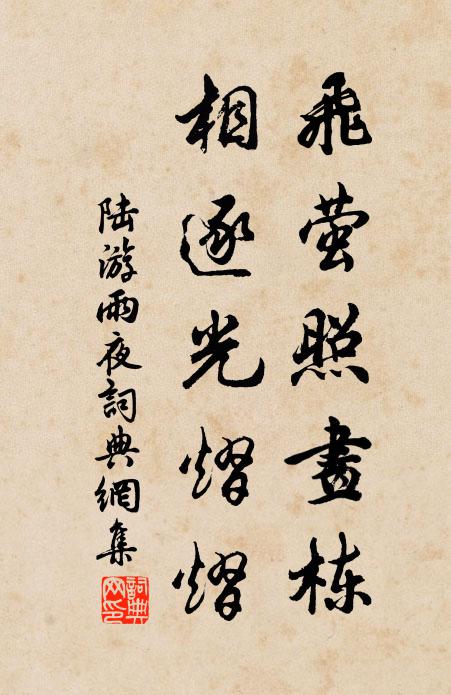 飛萤照畫栋
相逐光熠熠
陆游雨夜詞典網集
詞典
网印